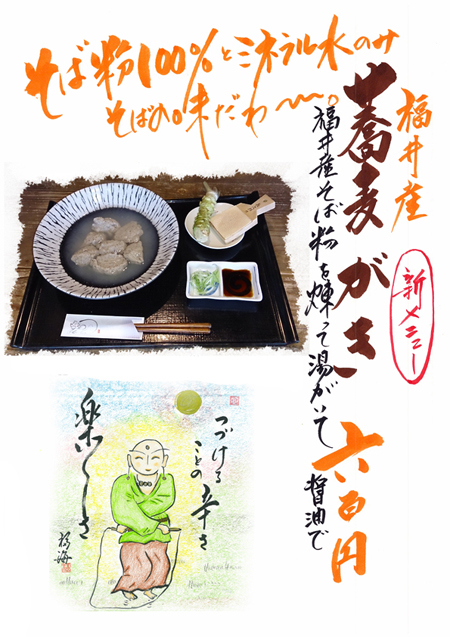 そば粉100%とミネラル水のみ
そばの味だわ〜〜。
福井産
蕎麦がき 六百円
新メニュー
福井産そば粉を煉って湯がいて
醤油で
つづける
ことの
辛さ
楽しさ